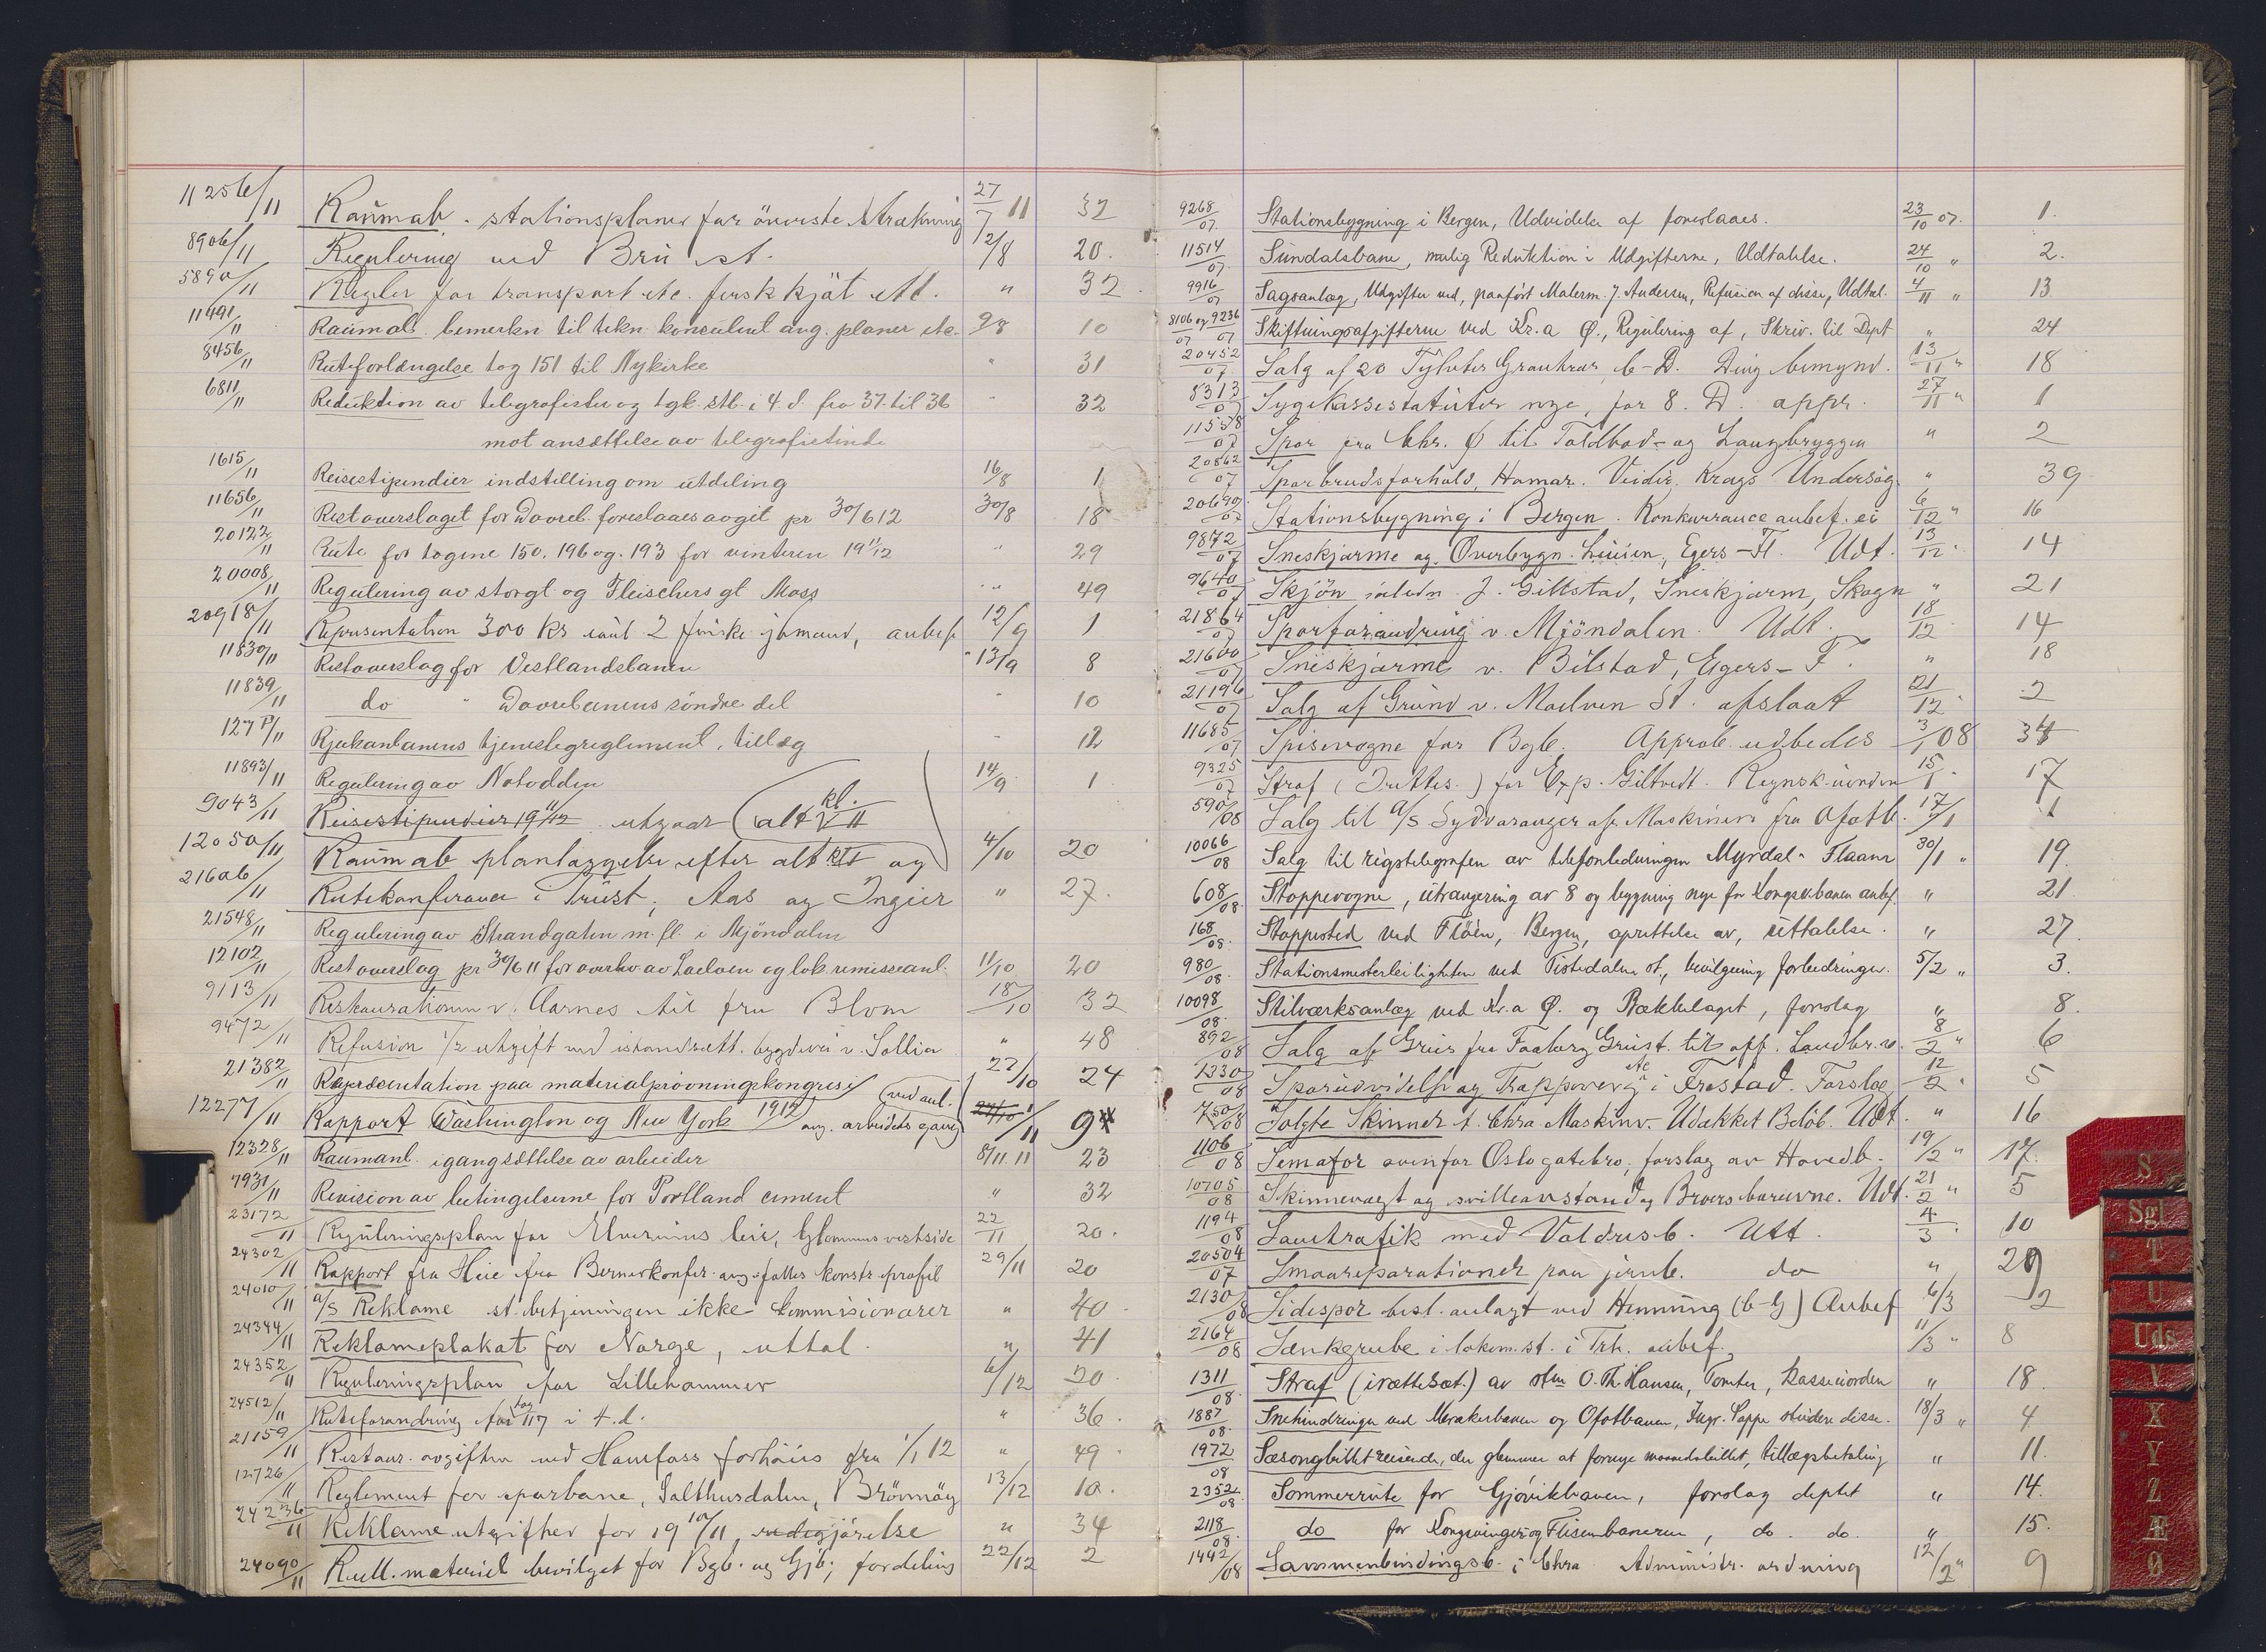 11256/11 Raumab. stationsplaner for överste strækning 27/7 11 32
8906/11 Regulering ved Bru st. 2/8 20.
5890/11 Regler for transport etc. ferskkjöt etc. " 32
11491/11 Raumab. bemerkn til tekn. konsulent ang. planer etc. 9/8 10
8456/11 Ruteforlængelse tog 151 til Nykirke " 31
6811/11 Reduktion av telegrafister og tgk. stb. i 4. d. fra 37. til 36 " 32
mot ansættelse av telegrafistinde
1615/11 Reisestipendier indstilling om utdeling 16/8 1
11656/11 Restoverslaget for Dovreb. foreslaaes avgit pr 30/6 12 30/8 18
20122/11 Rute for togene 150. 196 og. 193 for vinteren 19 11/12 " 29
20008/11 Regulering av storgt og Fleischers gt Moss " 49
20918/11 Representation 300 kr. 2 jbmænd, anbef 12/9 1
11830/11 Restoverslag for Vestlandsbanen 13/9 8
11839/11 do " Dovrebanens söndre del " 10
127 P/11 Rjukanbanens tjenestegreglement, tillæg " 12
11893/11 Regulering av Notodden 14/9 1
9043/11 Reisestipendier 19 11/12 utgaar (alt kl. V II
12050/11 Raumab planlæggelse efter alt og 4/10 20
21606/11 Rutekonferance i Trust; Aas og Ingier " 27.
21548/11 Regulering av Strandgaten m. fl. i Mjöndalen
12102/11 Restoverslag pr 30/6 11 for overbv. av Loelven og lok. remisseanl. 11/10 20
9113/11 Restaurationen v. Aarnes til fru Blom 18/10 32
9472/11 Refusion 1/2 utgift ved istandsætt. bygdevei v. Sollia " 48
21382/11 Representation paa materialprövningskongres i 27/10 24
12277/11 Rapport Washington og New York 1912 (ved anl. ang. arbeidets gang 1/11 9
12328/11 Raumanl. igangsættelse av arbeider 8/11 11 23
7931/11 Revision av betingelserne for Portland cement " 32
23172/11 Reguleringsplan for Elverums leir, Glommens vestside 22/11 20.
24302/11 Rapport fra Heie fra Bernerkonfer. ang. fælles konstr. profil 29/11 20
24010/11 a/s Reklame st. betjeningen ikke kommisionærer " 40
24344/11 Reklameplakat for Norge, uttal. " 41
24352/11 Reguleringsplan for Lillehammer 6/12 20
24512/11 Ruteforandring for tog 117 i 4. d. " 36.
21159/11 Restaur. avgiften ved Hamfoss forhöies fra 1/1 12 " 49.
12726/11 Reglement for sparbane, Salthusdalen, Brönnöy 13/12 10.
24236/11 Reklameutgifter for 19 10/11, redegjörelse " 34
24090/11 Rull. materiel bevilget for Bgb. og Gjb; fordeling 22/12 2
9268/07. Stationsbygning i Bergen, Udvidelse af foreslaaes. 23/10 07. 1.
11514/07. Sundalsbane, mulig Reduktion i Udgifterne, Udtalelse. 24/10 " 2.
9916/07 Sagsanlæg, Udgifter ved, paaført Malerm. J. Andersen, Refusion af disse, Udtal. 4/11 " 13
8106 og 9236/07 07 Skiftningsafgifterne ved Kr.a Ø., Regulering af, Skriv. til Dept " 24
20452/07 Salg af 20 Tylvter Grantrær, C-D. Ding bemynd. 13/11 " 18
8313/07 Sygekassestatuter nye, for 8. D. appr. 27/11 " 1
11558/07 Spor fra Chr. Ø til Toldbod- og Langbryggen " 2
20862/07 Sporbrudsforhold, Hamar. Veidir. Krags Undersög. " 39
20690/07 Stationsbygning i Bergen. Konkurrance anbef. ei 6/12 " 16
9872/07 Sneskjærme og Overbygn. Linien, Egers-Fl. Udt. 13/12 " 14
9640/07 Skjön J. Gillstad, Sneskjærm, Skogn " 21
21864/07 Sporforandring v. Mjöndalen. Udt. 18/12 14
21600/07 Sneskjærme v. Bilstad, Egers-F. " 18
21196/07 Salg af Grund v. Maelven St. afslaat 21/12 " 2
11685/07 Spisevogne for Bgb. Approb. udbedes 3/1 08 34
9325/07 Straf (Irettes.) for Exp. Giltvedt. Regnsk.uorden 15/1 " 17
590/08 Salg til a/s Sydvaranger af Maskineri fra Ofotb. 17/1 1
10066/08 Salg til rigstelegrafen av telefonledningen Myrdal - Flaam 30/1 " 19.
608/08 Stoppevogne, utrangering av 8 og bygning nye for Kongsv.banen anbef. " 21.
168/08. Stoppested ved Flöen, Bergen, oprettelse av, uttalelse. " 27.
980/08. Stationsmesterleiligheten ved Tistedalen st., bevilgning forbedringer. 5/2 " 3.
10098/08. Stilværksanlæg ved Kr.a Ø. og Bækkelaget, forslag " 8.
892/08 Salg af Grus fra Faaberg Grust. til opf. Landbr.v. 8/2 " 6
1230/08 Sporudvidelse og Trappoverg i Frestad. Forslag 12/2 " 5
750/08 Solgte Skinner t. Chra Maskinv. Udækket Belöb. Udt. " 16
1106/08 Semafor ovenfor Oslogatebro, forslag av Hovedb. 19/2 " 17.
10705/08 Skinnevægt og svilleavstand Udt. 21/2 " 5
1194/08 Samtrafik med Valdresb. Utt. 4/3 " 10
20504/07 Smaareparationer paa jernb. do " 29
2130/08 Sidespor best. anlagt ved Henning (C-G) Anbef 6/3 2
2164/08 Senkgrube i lokom.st. i Trh. anbef. 11/3 " 8
1311/08. Straf (irettesæt.) av stm O. Th. Hansen, Tomter, kasseuorden " 18
1887/08. Snehindringer ved Merakerbanen og Ofotbanen, Ingr. Sappe studere disse. 18/3 " 4
1972/08 Sæsongbillettreisende, der glemmer at fornye maanedsbillet, tillægsbetaling " 11.
2352/08. Sommerrute for Gjövikbanen, forslag deptet " 14.
2118/08. do for Kongsvinger og Flisenbanerne, do. do. " 15.
1442/08 Sammenbindingsb. i Chra Administr. ordning 12/2 " 9
S
Sgl
T
U
Uds
V
X
Y
Z
Æ
Ø